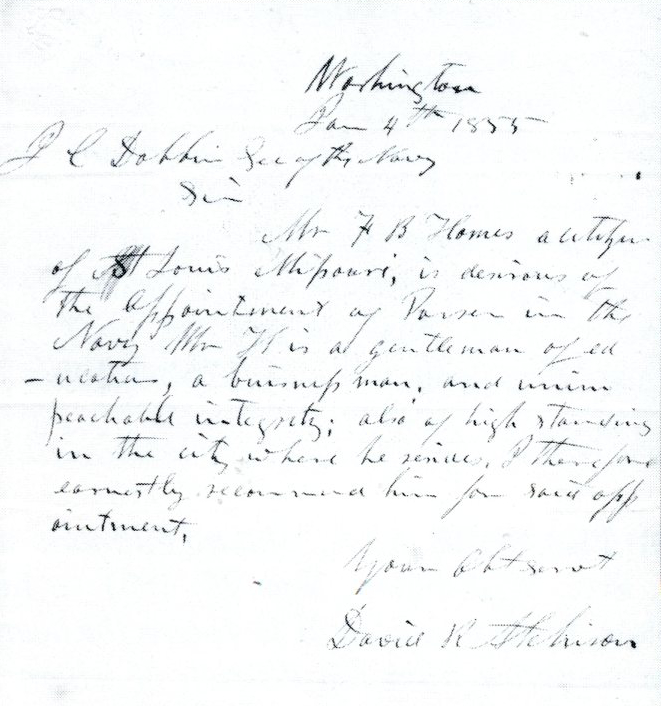 Washington
Jan 4th 1855
J C Dobbin Sec of the Navy
Sir
Mr F B Homes a citizen
of St Louis Missouri, is desirous of
the appointment of Purser in the
Navy Mr H is a gentleman of ed
-ucation, a business man, and unim
peachable integrity; also of high standing
in the city where he resides, I therefore
earnestly recommend him for said app
ointment,
Your Obt servt
David R Atchison